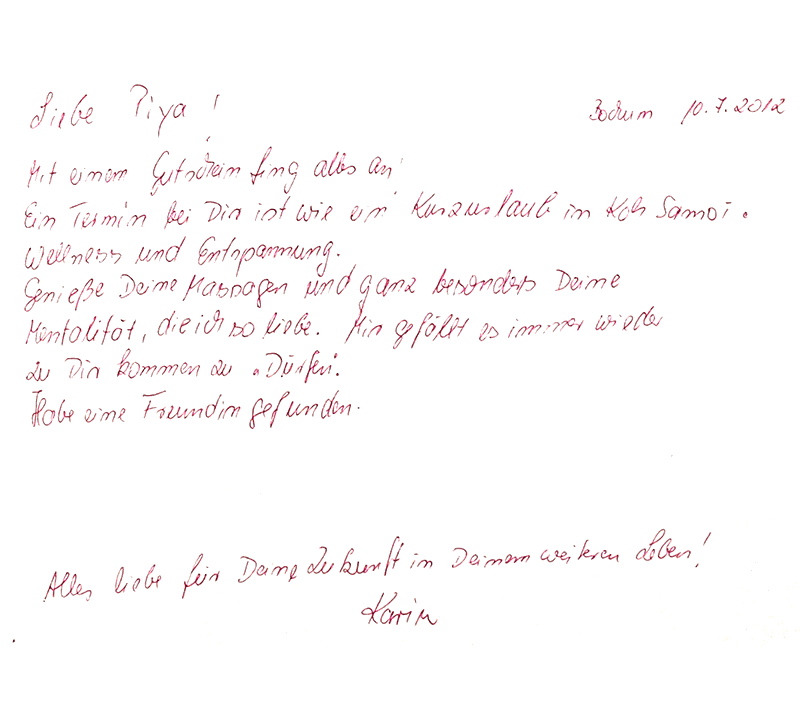 Liebe Piya!
Bochum 10.7.2012
Mit einem Gutschein fing alles an!
Ein Termin bei Dir ist wie ein Kurzurlaub in Koh Samoi.
Wellness und Entspannung.
Genieße Deine Massagen und ganz besonders Deine
Mentalität, die ich so liebe. Mir gefällt es immer wieder
zu Dir kommen zu "Dürfen".
Habe eine Freundin gefunden.
Alles liebe für Deine Zukunft in Deinem weiteren Leben!
Karin